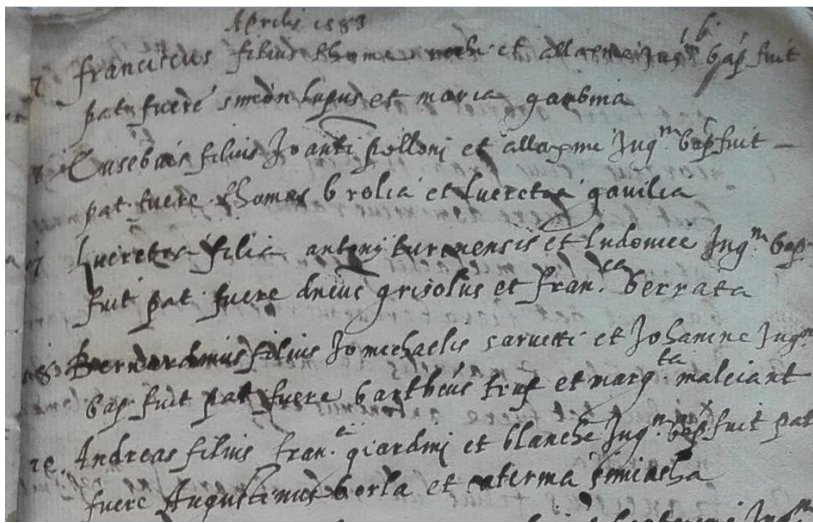 Aprilis 1583
7 franciscus filius thome rochi et allaxmie Jug.m bap. fuit
pat. fuere simon lupus et maria garbina
Eusebius filius Joanti polloni et allaxme Jug.m bap. fuit
pat. fuere thomas brolia et lucretia gavilia
Lucretia filia antonij turonensis et ludovice Jug.m bap.
fuit pat. fuere dnicus grisolus et fran.ca berrata
18 Bernardinus filius Jomichaelis sarvetti et Johanine Jug.m
bap. fuit pat fuere bartheus truf et marg.ta malciant
Andreas filius fran.ci giardini et blanche Jug.m bap. fuit pat
fuere Augustinus borla et caterina